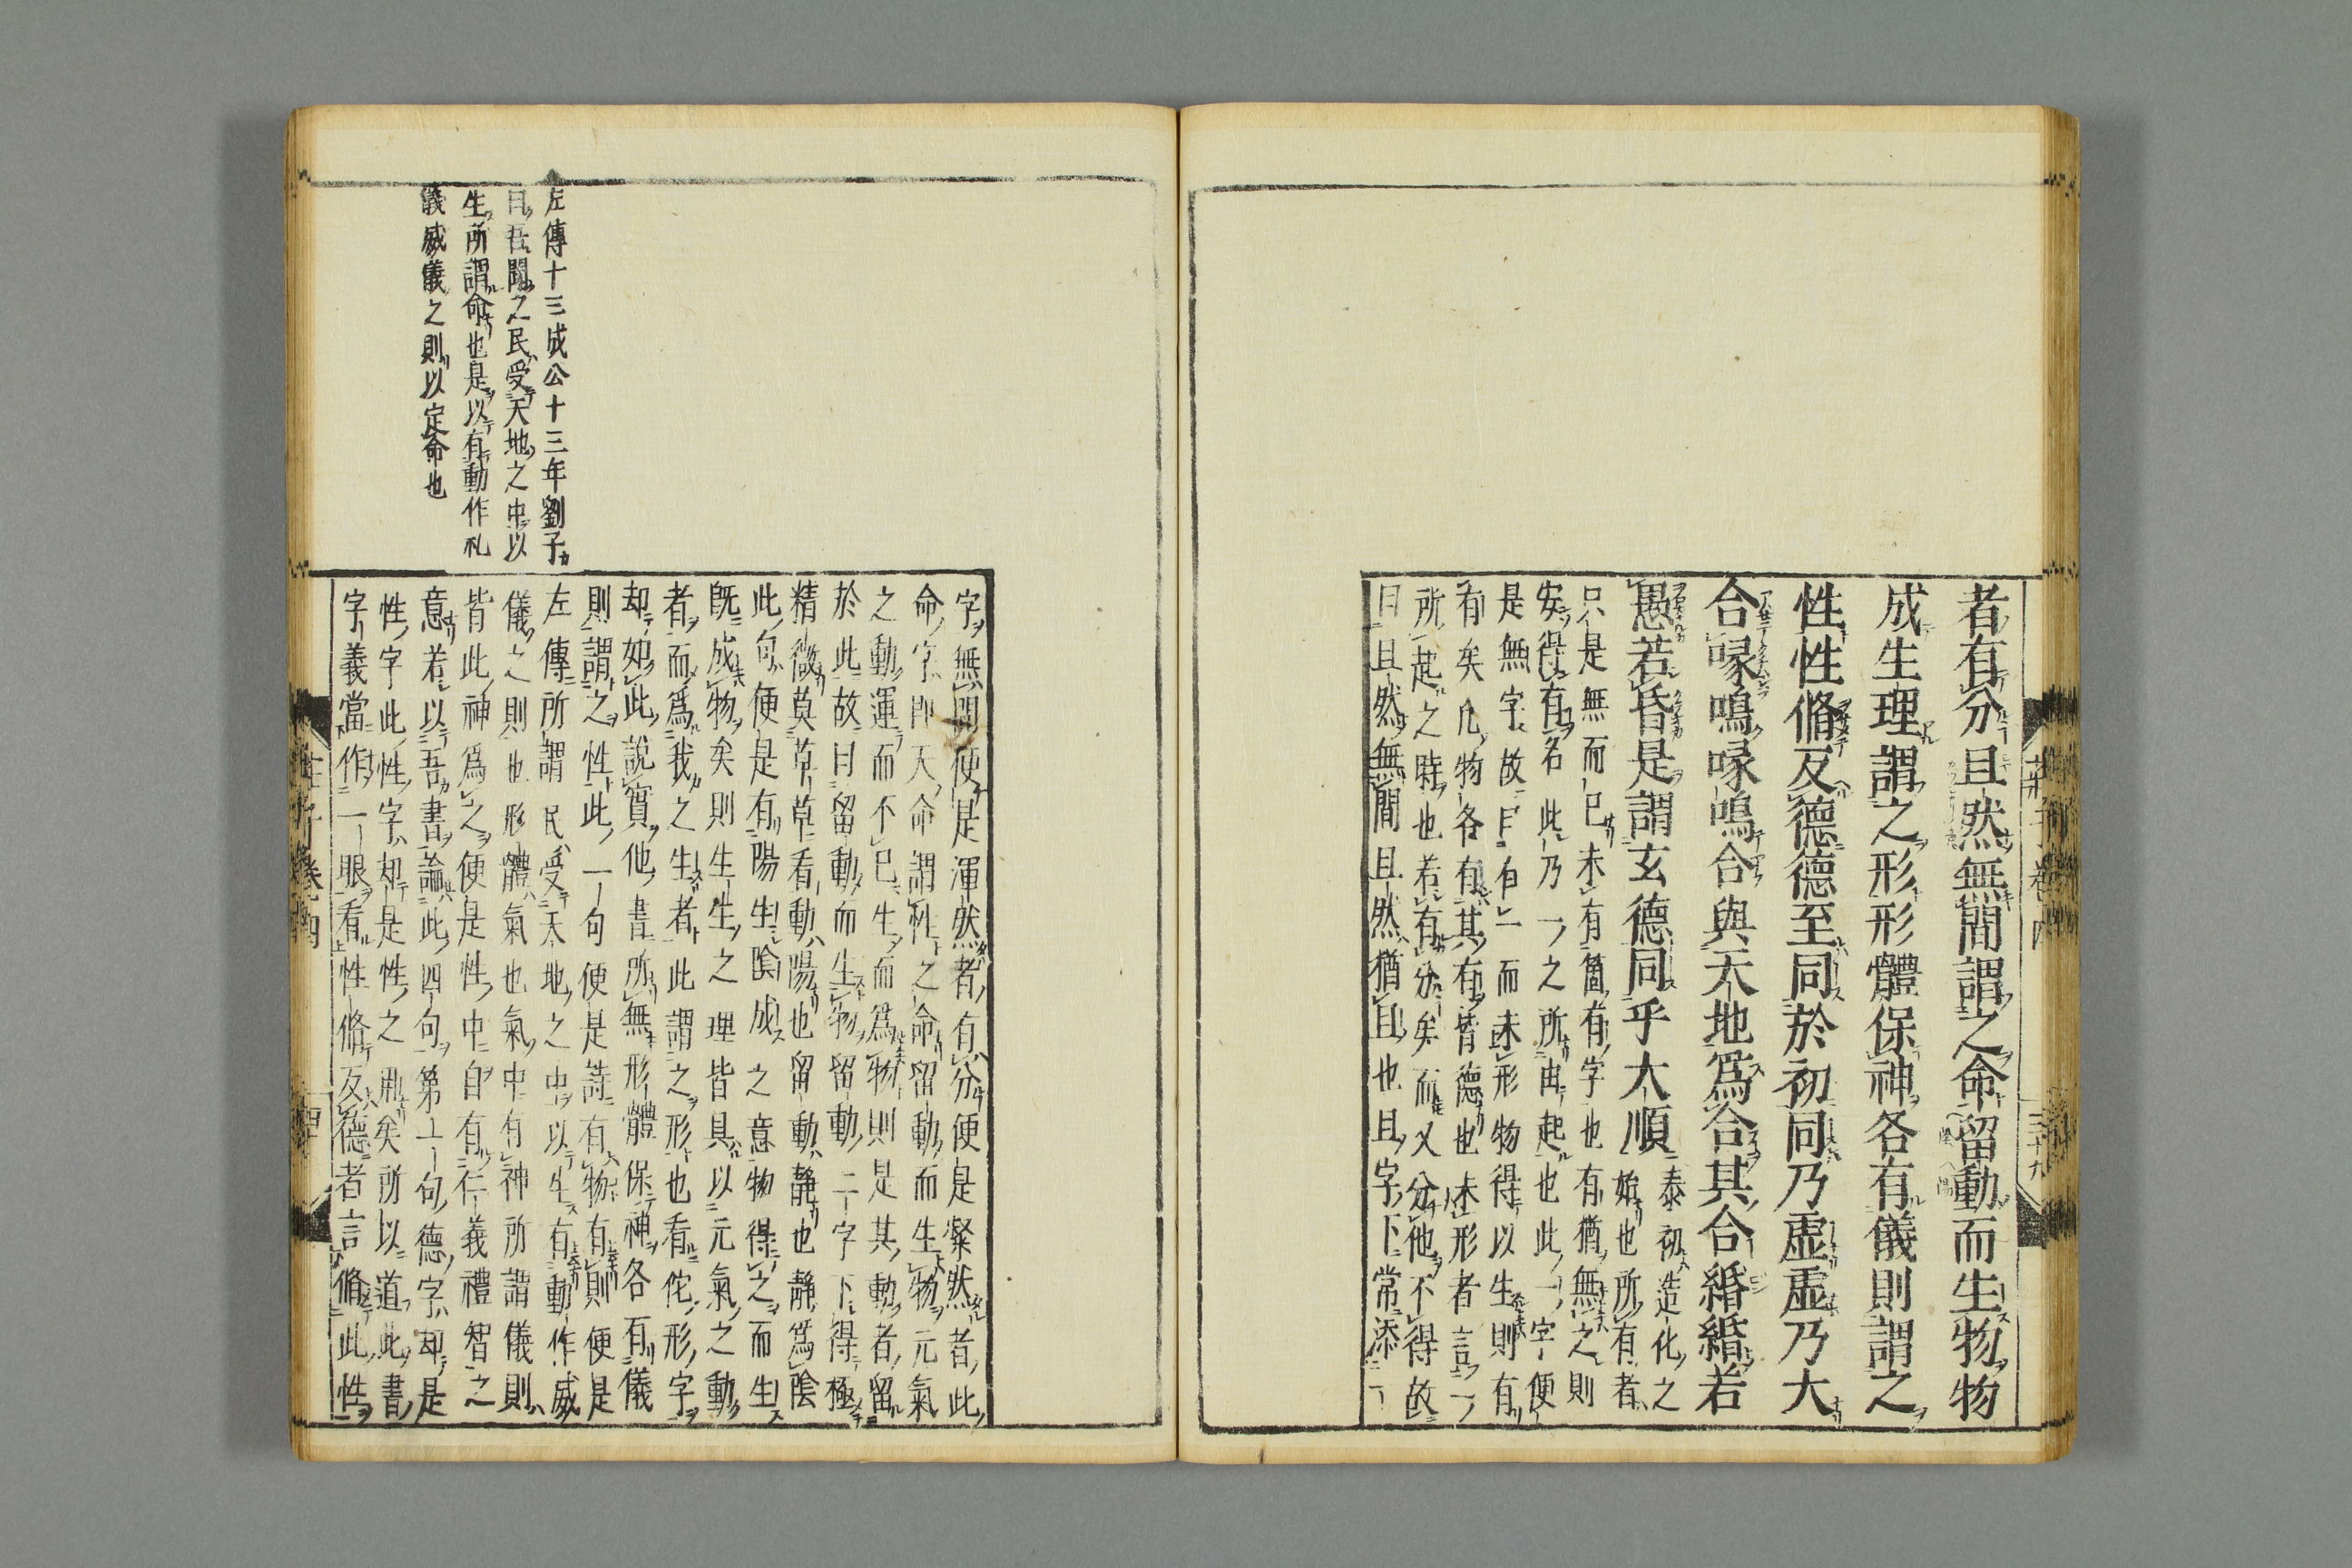 者有分且然無閒謂之命留動而生物物
成生理謂之形形體保神各有儀則謂之
性性脩反德德至同於初同乃虛虛乃大
合喙鳴喙鳴合與天地爲合其合緡緡若
愚若昏是謂玄德同乎大順
泰初造化之
始也所有者
只是無而已未有箇有字也有猶無之則
安得有名此乃一之所由起也此一字便
是無字故曰有一而未形物得以生則有
有矣凡物各有其有皆德也未形者言一
所起之時也若有分矣而又分他不得故
曰且然無閒且然猶且也且字下常添一
字無閒便是渾然者有分便是粲然者此
命字即天命謂性之命留動而生物元氣
之動運而不已生而爲物則是其動者留
於此故曰留動而生物留動二字下得極
精微莫草草看動陽也留動靜也靜爲陰
此句便是有陽生陰成之意物得之而生
既成物矣則生生之理皆具以元氣之動
者而爲我之生者此謂之形也看佗形字
却如此說實他書所無形體保神各有儀
則謂之性此一句便是詩有物有則便是
左傳所謂民受天地之中以生有動作威
儀之則也形體氣也氣中有神所謂儀則
皆此神爲之便是性中自有仁義禮智之
意若以吾書論此四句第一句德字却是
性字此性字却是性之用矣所以道此書
字義當作一眼看性脩反德者言脩此性
左傳十三成公十三年劉子
曰吾聞之民受天地之中以
生所謂命也是以有動作礼
義威儀之則以定命也